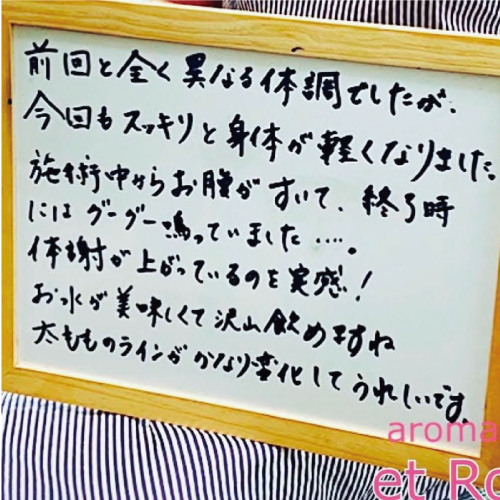 前回と全く異なる体調でしたが、
今回もスッキリと身体が軽くなりました。
施術中からお腹がすいて、終了時
にはグーグー鳴っていました….。
体謝が上がっているのを実感!
お水が美味しくて沢山飲めますね
太もものラインがかなり変化してうれしいです。
aroma
et Ro